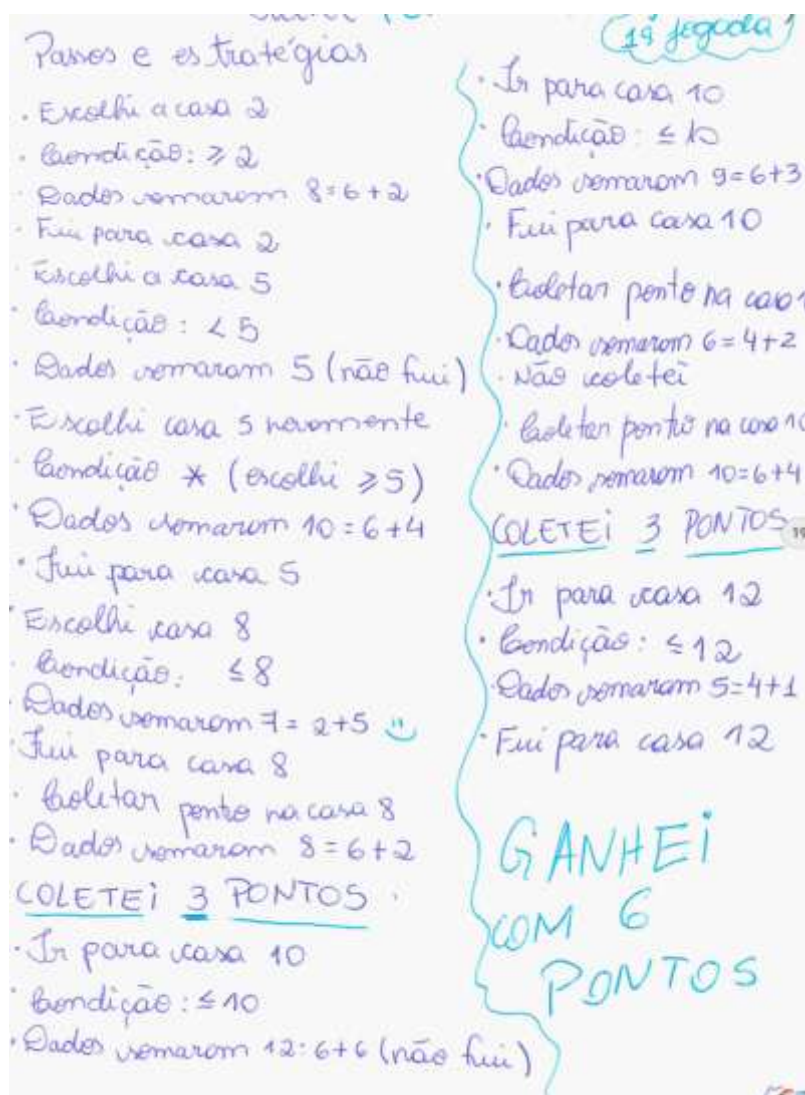 (1ª jogada)
Passos e estratégias
· Escolhi a casa 2
· Condição: ≥ 2
· Dados somaram 8=6+2
· Fui para casa 2
· Escolhi a casa 5
· Condição: < 5
· Dados somaram 5 (não fui)
· Escolhi casa 5 novamente
· Condição * (escolhi ≥5)
· Dados somaram 10=6+4
· Fui para casa 5
Escolhi casa 8
· Condição: ≤8
· Dados somaram 7=2+5
· Fui para casa 8
· Coletar ponto na casa 8
· Dados somaram 8=6+2
COLETEi 3 PONTOS.
· Ir para casa 10
· Condição: ≤10
· Dados somaram 12:6+6 (não fui)
· Ir para casa 10
· Condição: ≤ 10
· Dados somaram 9=6+3
· Fui para casa 10
· Coletar ponto na casa 1
· Dados somaram 6=4+2
· Não coletei
· Coletar ponto na casa 10
· Dados somaram 10=6+4
COLETEi 3 PONTOS
· Ir para casa 12
· Condição: ≤12
· Dados somaram 5=4+1
· Fui para casa 12
GANHEi
COM 6
PONTOS